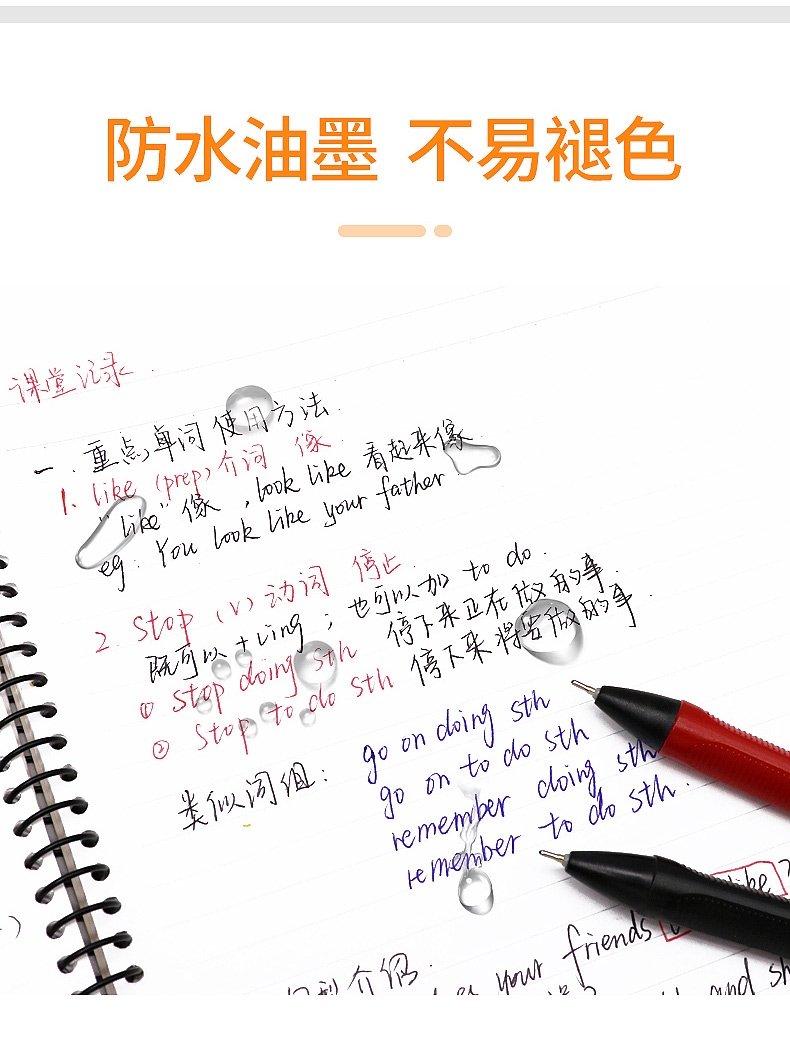 防水油墨 不易褪色
课堂记录
一.重点单词使用方法
1. like (prep) 介词 像
"like" 像 , look like 看起来像
eg: You look like your father
2. stop (v) 动词 停止
既可以 + ving ; 也可以加 to do.
① stop doing sth 停下来正在做的事.
② stop to do sth 停下来将要做的事.
类似词组: go on doing sth
go on to do sth
remember doing sth
remember to do sth.
介绍.
your friends
and